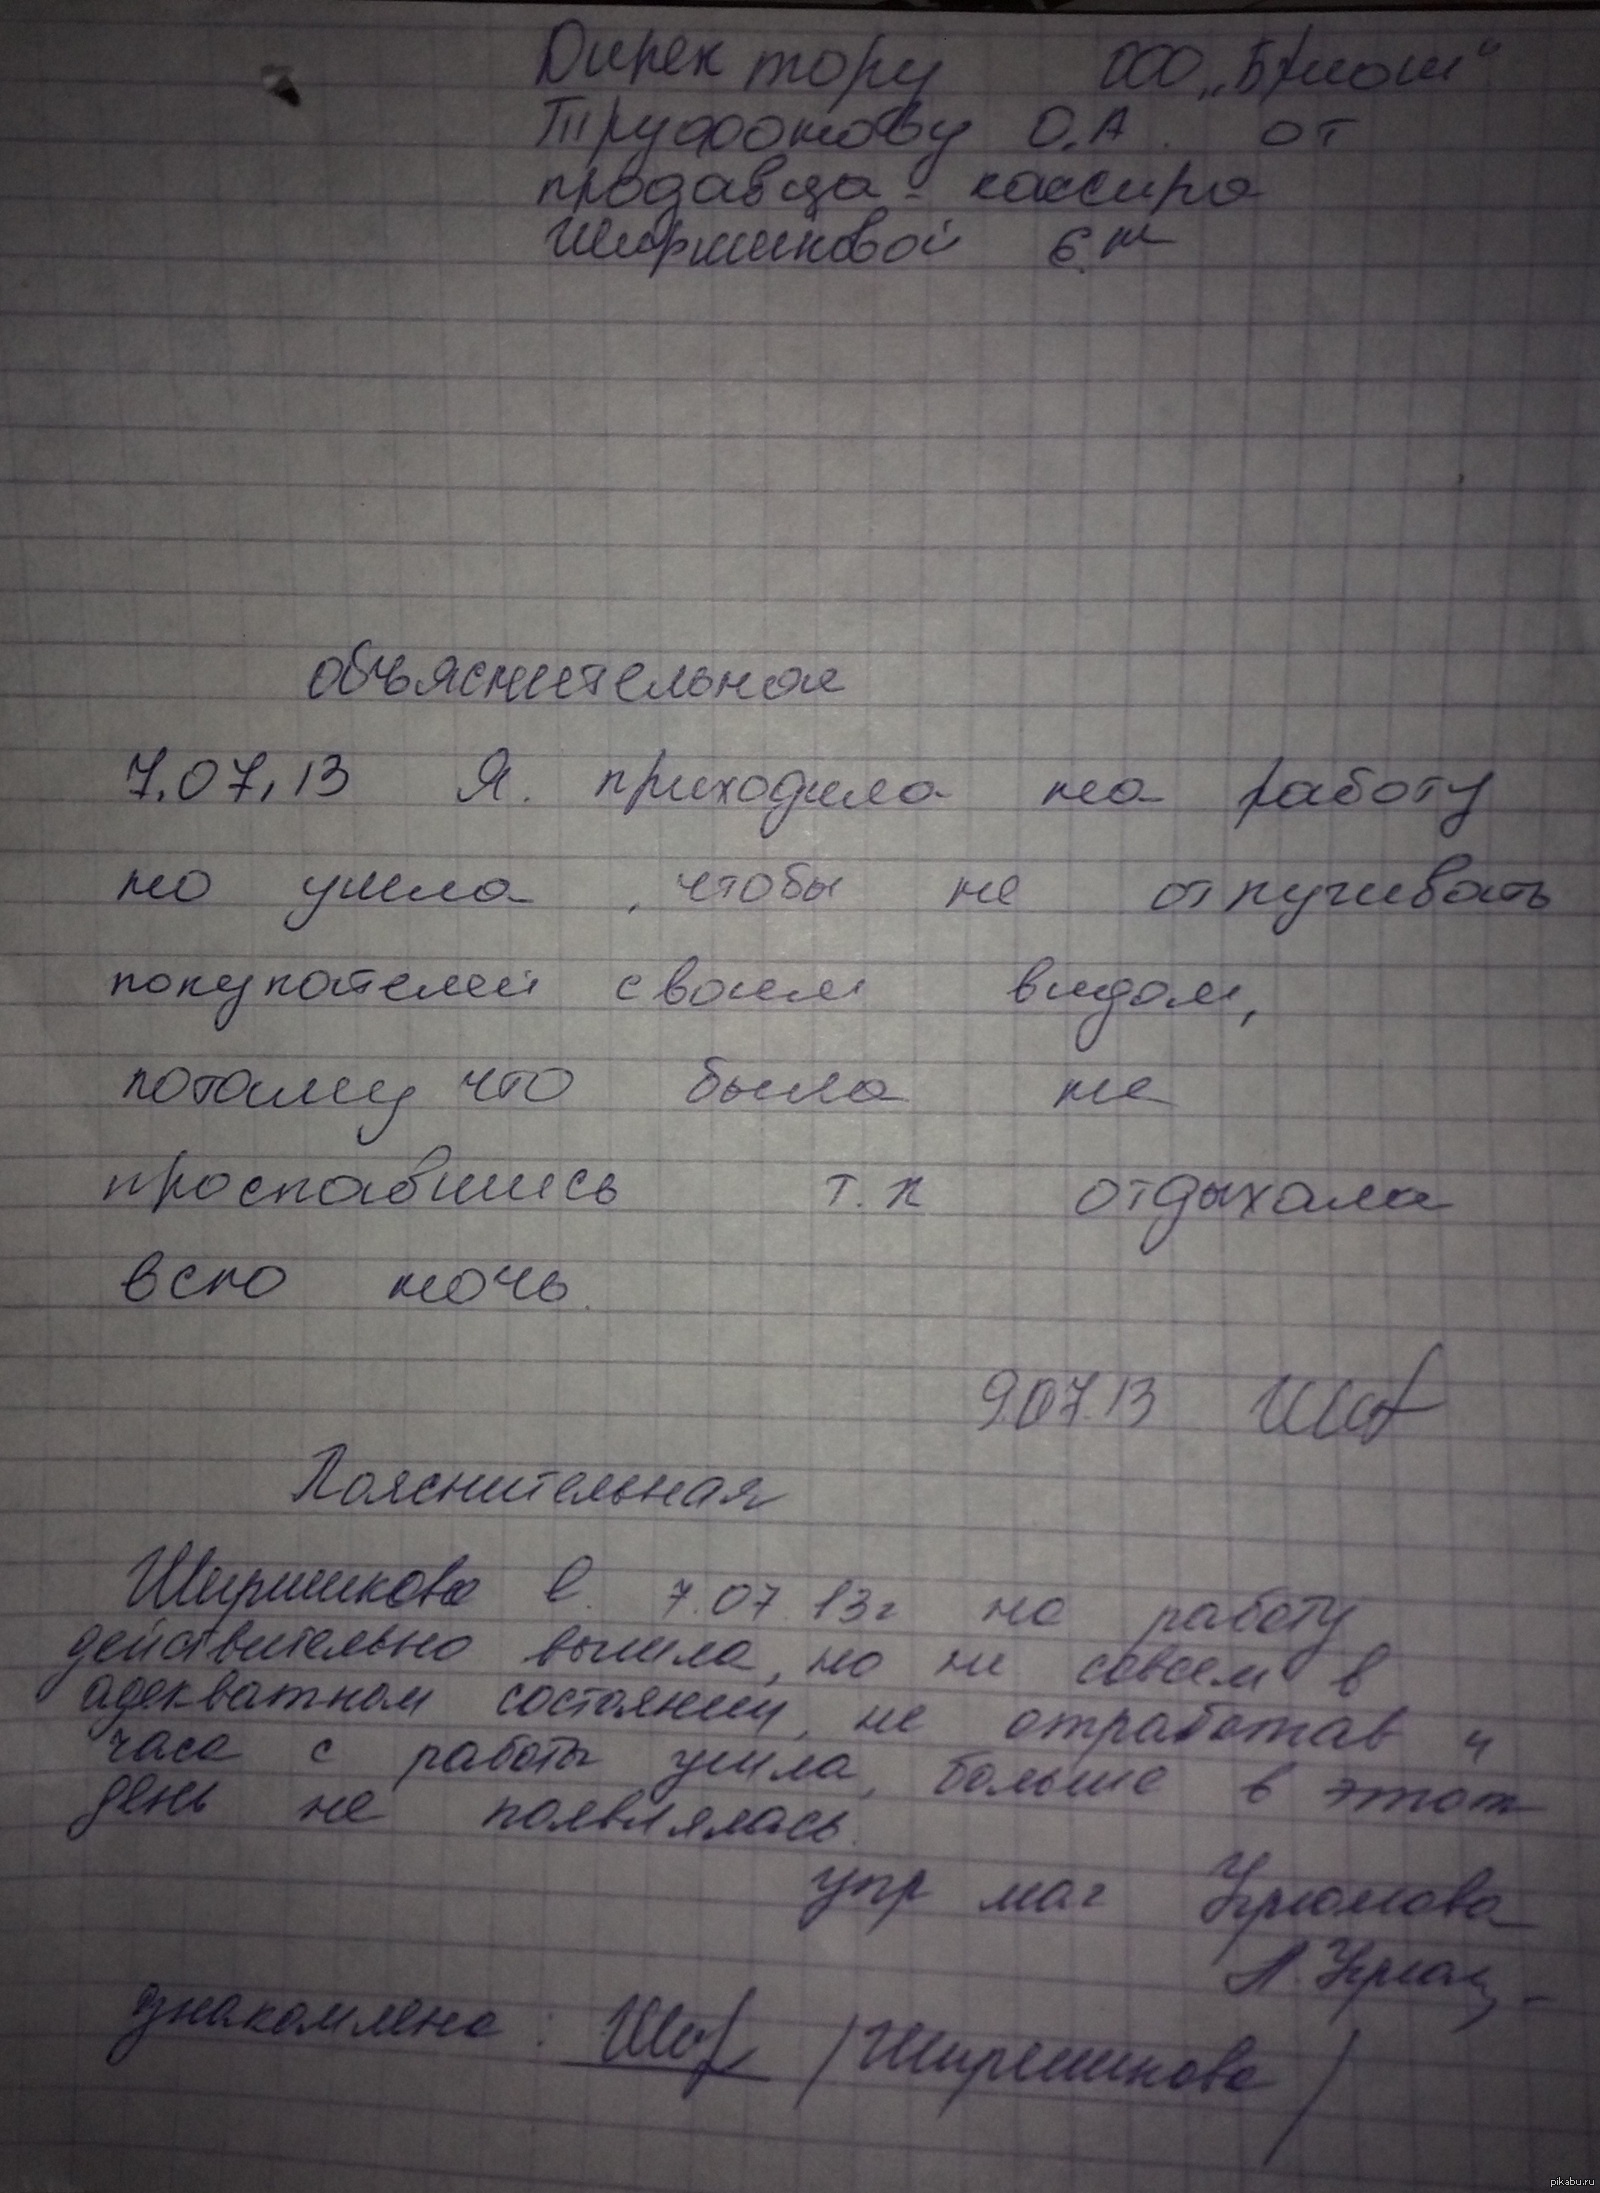 Директору ООО „Бриош"
Труфонову О.А. от
продавца - кассира
Ширшиковой Е.Н
объяснительная
7.07.13 Я. приходила на работу
но ушла, чтобы не отпугивать
покупателей своим видом,
потому что была не
проспавшись т.к отдыхала
всю ночь.
9.07.13
Пояснительная
Ширшикова Е. 7.07.13г на работу
действительно вышла, но не совсем в
адекватном состоянии, не отработав и
часа с работы ушла, больше в этот
день не появлялась.
упр маг
ознакомлена: /Ширшикова/
pikabu.ru